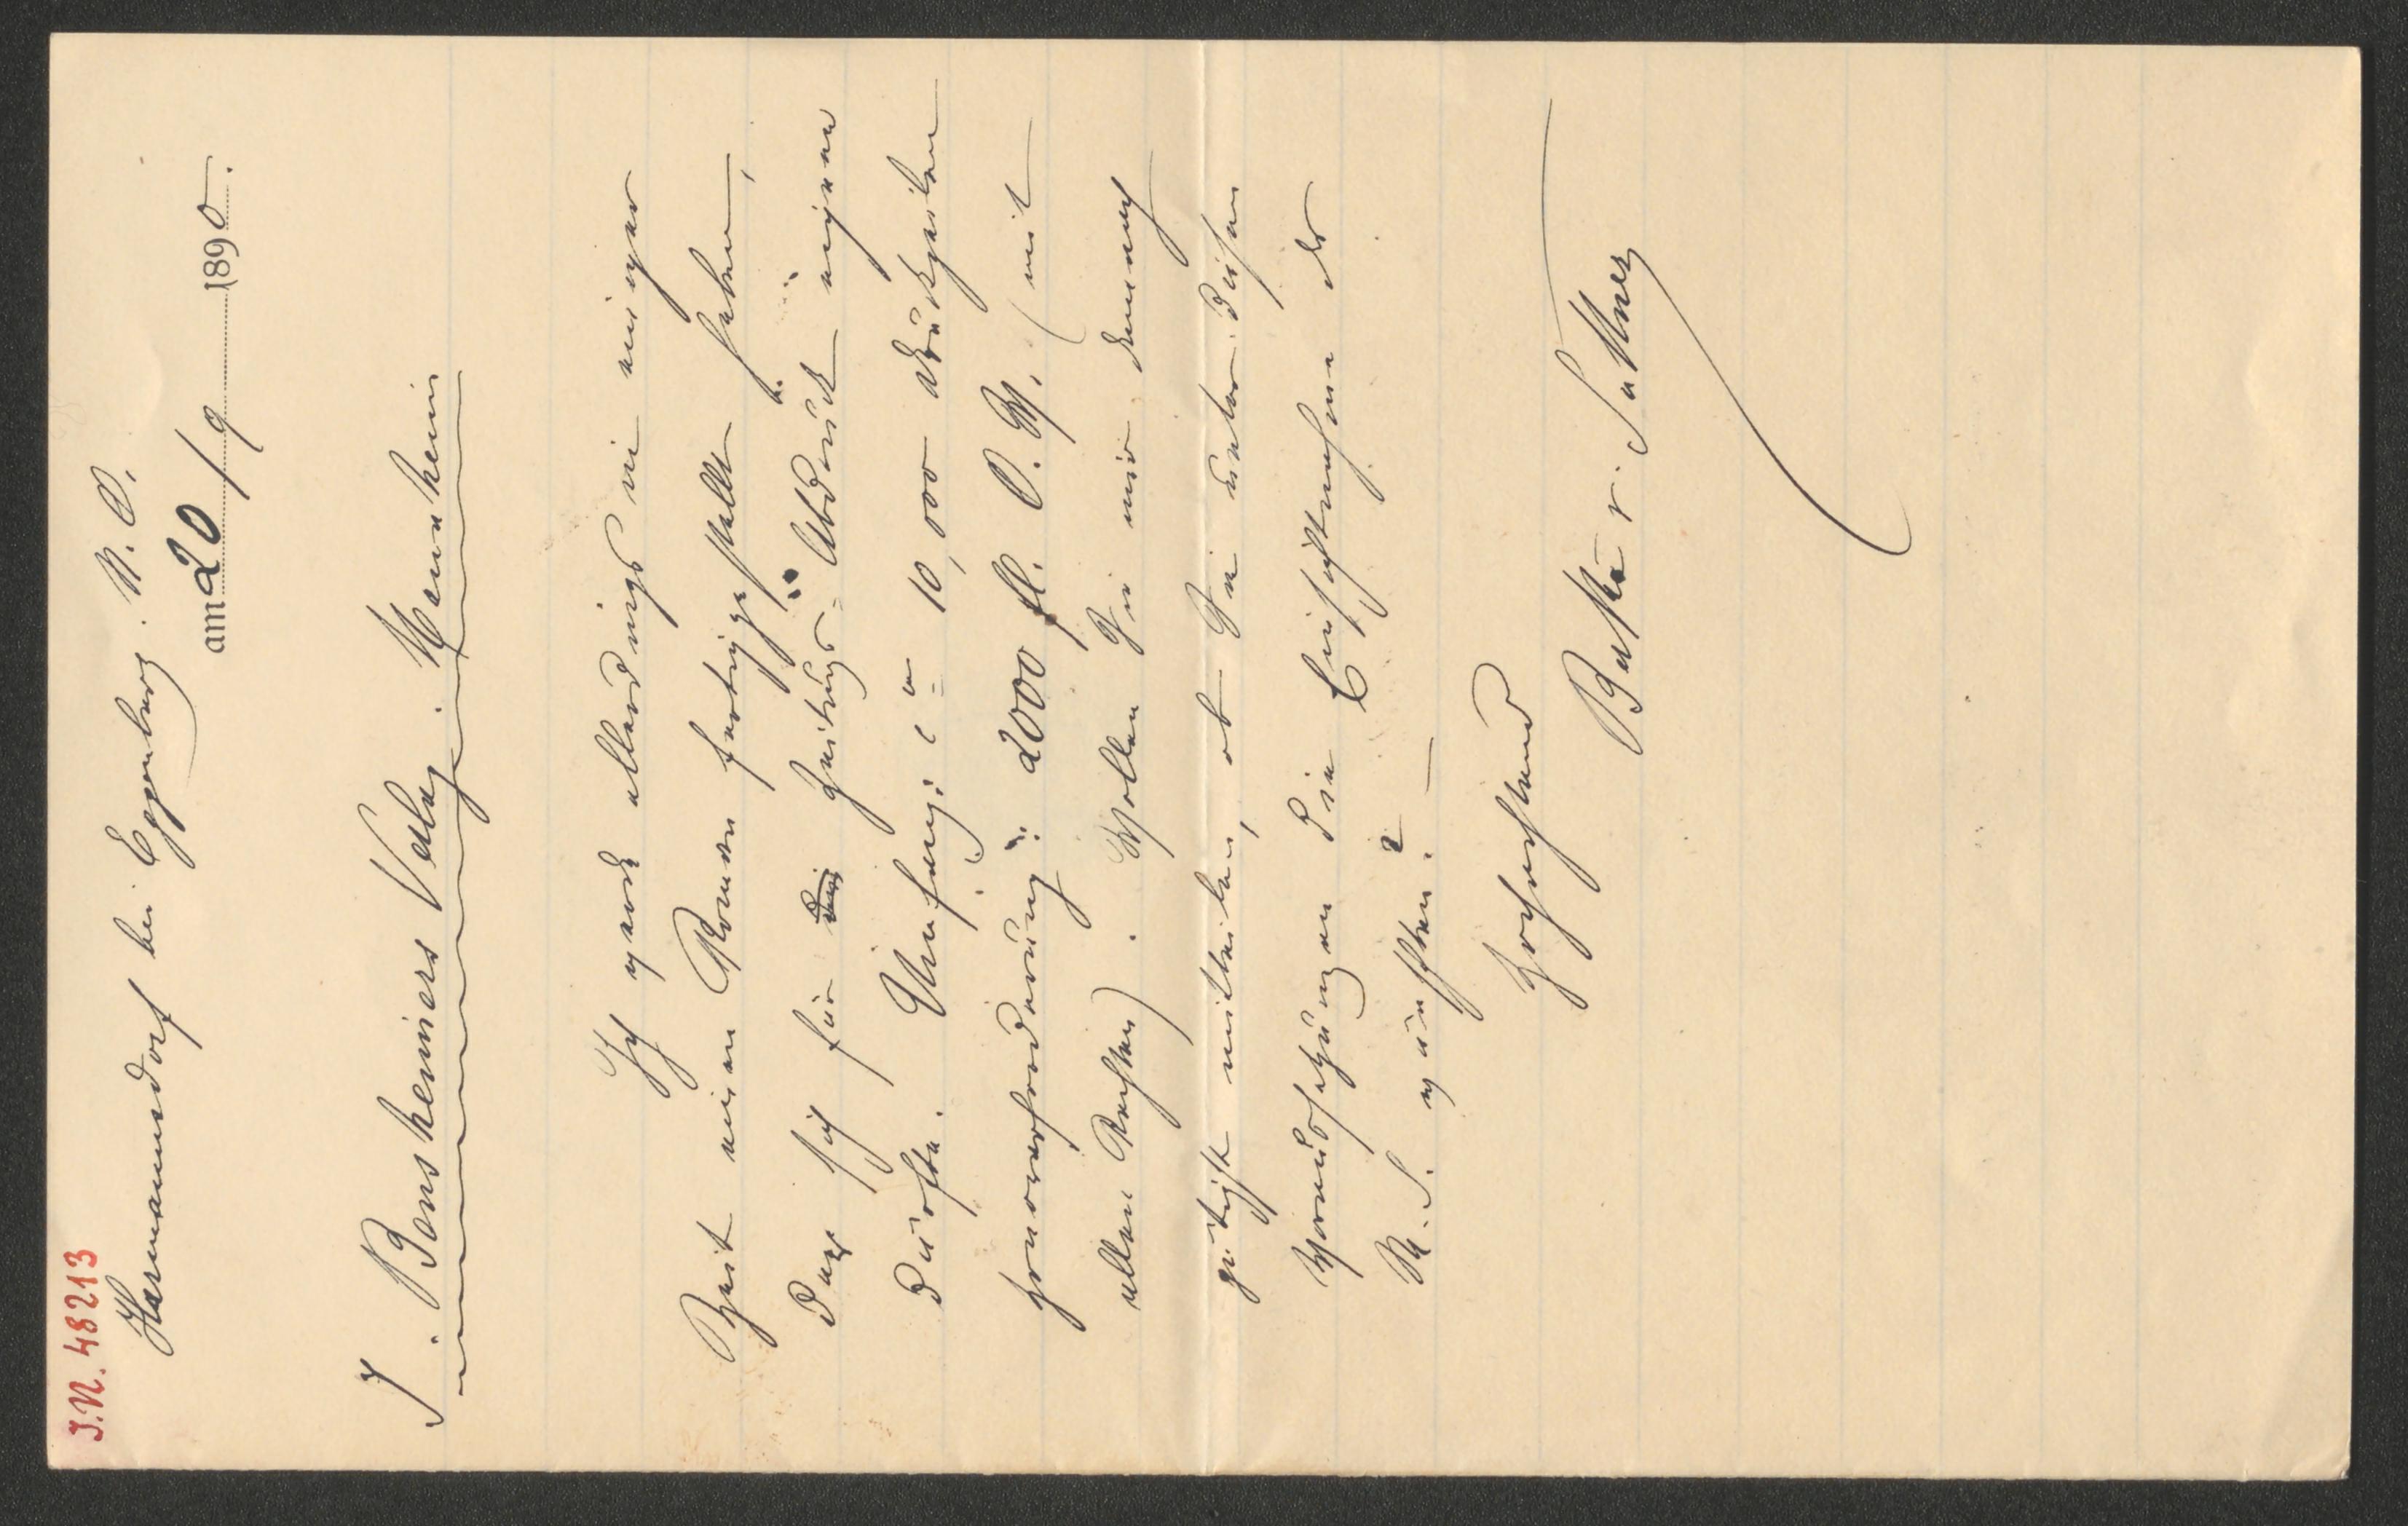 I.N. 48213
Harmannsdorf bei Eggenburg. N. O.
am 20/9 1890.
J. Bensheimers Verlag. Mannheim
Ich werde allerdings in einiger
Zeit einen Roman fertiggestellt haben,
der sich für den Zeitungs-Abdruck eignen
dürfte. Umfang: ca 10,000 Druckzeilen
Honorarforderung: 2000 fl. O. W. (mit
allen Rechten). Wollen Sie mir demnach
gütigst mitteilen, ob Sie unter diesen
Voraussetzungen die Einsichtnahme des
M. S. wünschen? —
Hochachtend
Bertha v. Suttner